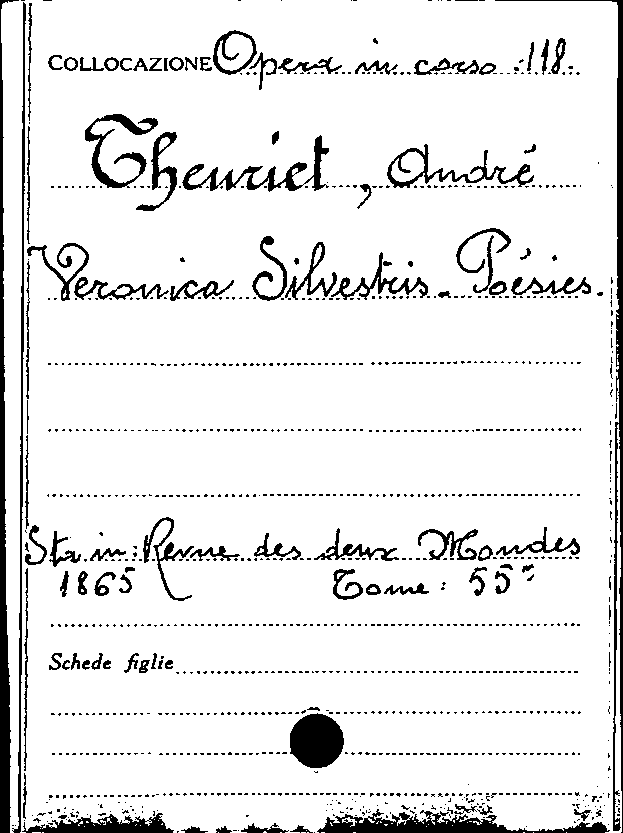 COLLOCAZIONE Opera in corso .118.
Theuriet, André
Veronica Silvestris. Poésies.
Sta in: Revue des deux Mondes
1865 Tome: 55°
Schede figlie